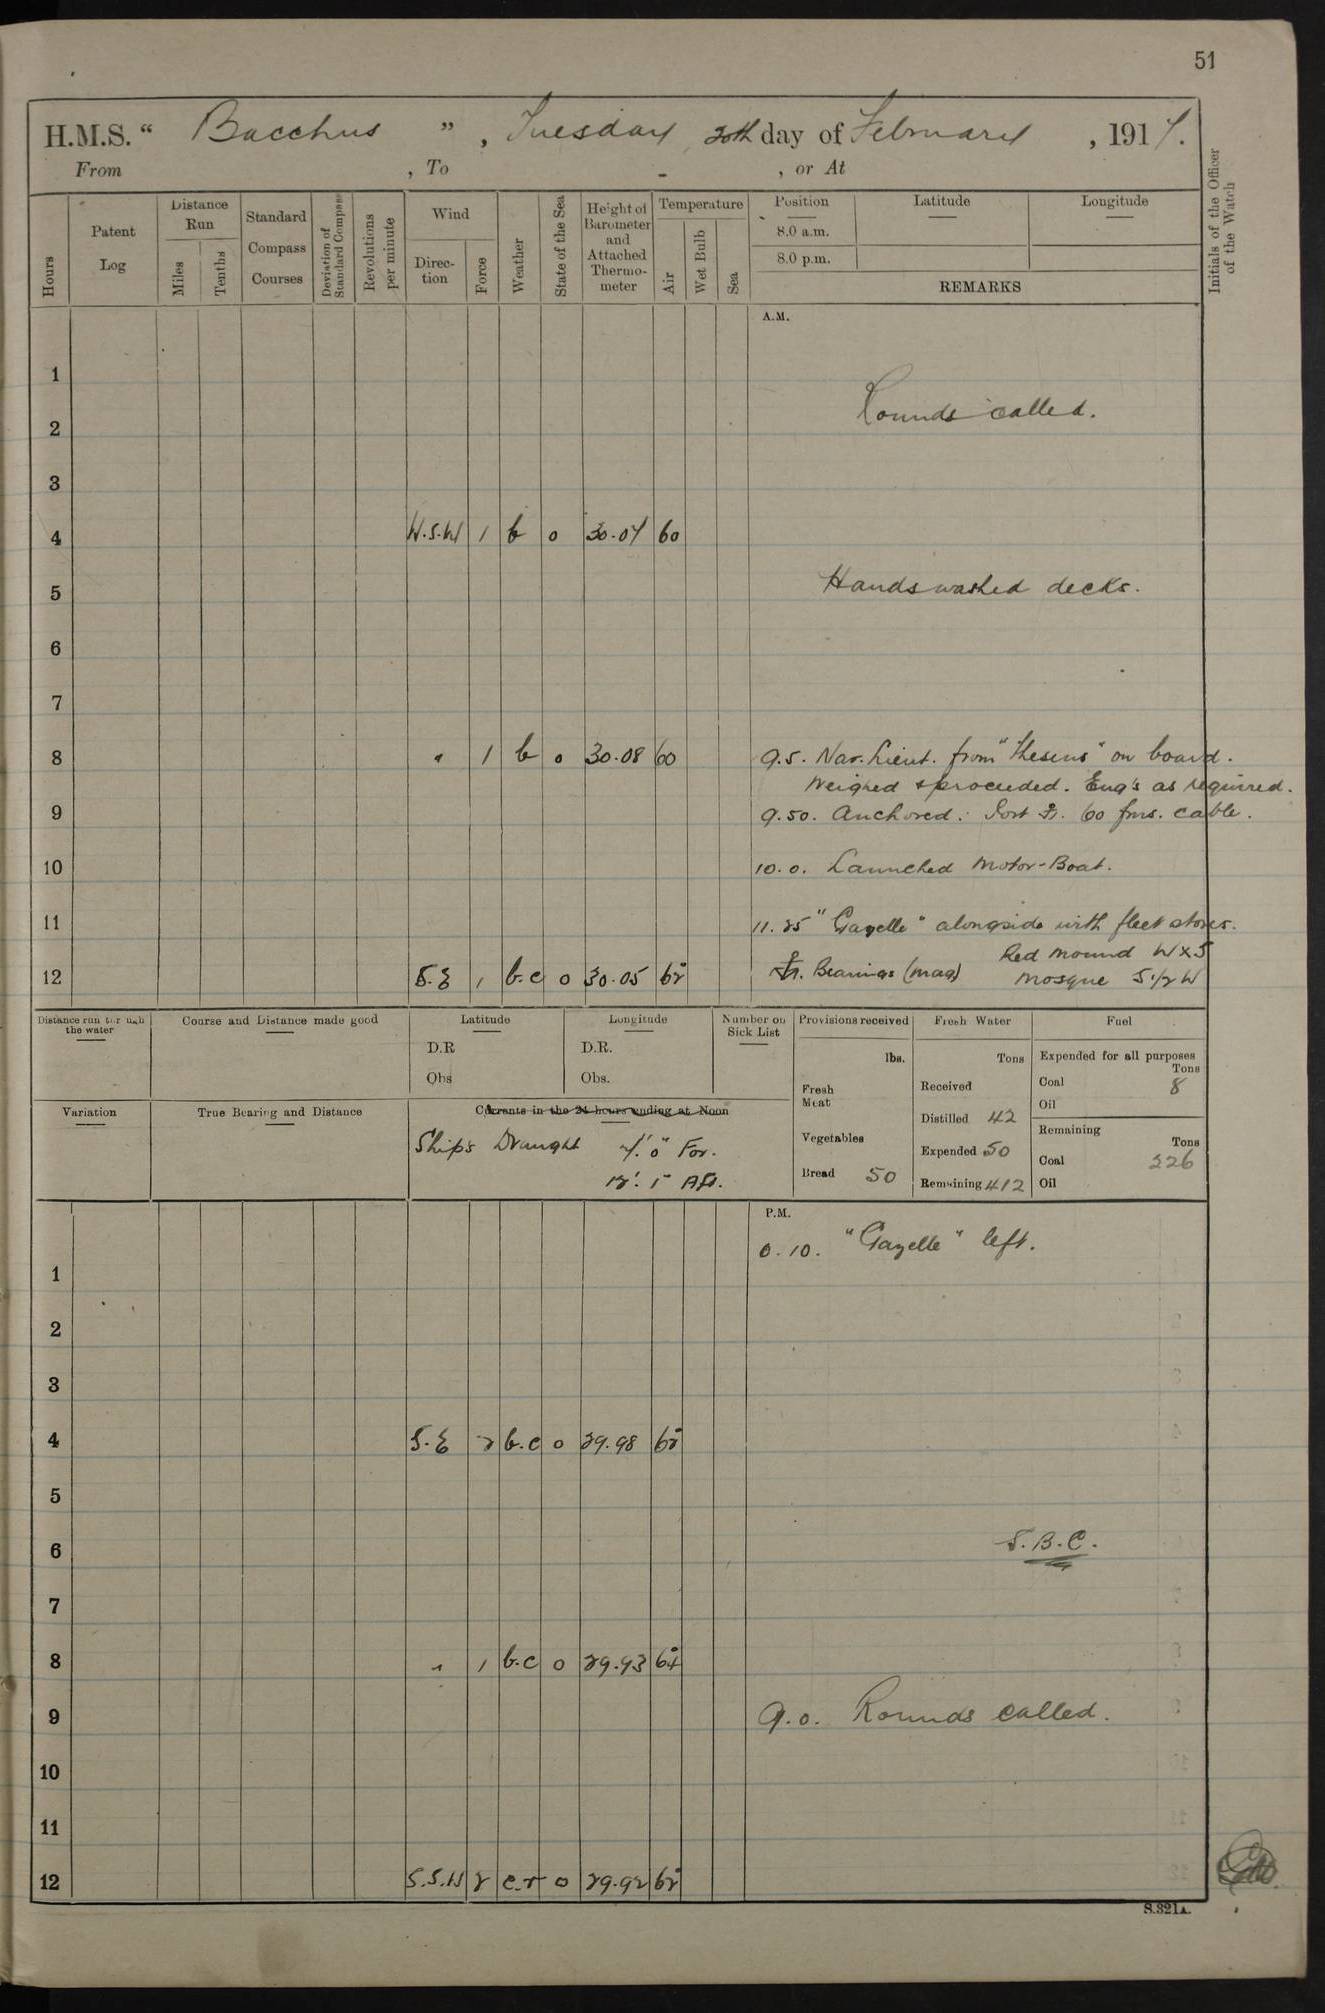 51
H.M.S. “ Bacchus ” , Tuesday 20th day of February , 1917.
From , To - , or At
Hours
Patent Log
Distance Run
Miles
Tenths
Standard Compass Courses
Deviation of Standard Compass
Revolutions per minute
Wind
Direction
Force
Weather
State of the Sea
Height of Barometer and Attached Thermometer
Temperature
Air
Wet Bulb
Sea
Position
8.0 a.m.
8.0 p.m.
Latitude
Longitude
REMARKS
Initials of the Officer of the Watch
A.M.
1
Rounds called.
2
3
4 W.S.W 1 b o 30.07 60
5 Hands washed decks.
6
7
8 " 1 b o 30.08 60 9.5. Nav. Lieut. from "Theseus" on board.
Weighed & proceeded. Eng's as required.
9 9.50. Anchored. Port Br. 60 fms. cable.
10 10.0. Launched Motor-Boat.
11 11.25 "Gazelle" alongside with fleet stores.
Red Mound W x S
12 S.E 1 b.c o 30.05 62 Br. Bearings (mag) Mosque S.1/2 W
Distance run through the water
Course and Distance made good
Latitude
D.R
Obs
Longitude
D.R.
Obs.
Number on Sick List
Provisions received
lbs.
Fresh Meat
Vegetables
Bread 50
Fresh Water
Tons
Received
Distilled 42
Expended 50
Remaining 412
Fuel
Expended for all purposes
Tons
Coal 8
Oil
Remaining
Tons
Coal 226
Oil
Variation
True Bearing and Distance
Currents in the 24 hours ending at Noon
Ship's Draught 7'. 0" For.
12'. 1" Aft.
P.M.
0.10. "Gazelle" left.
1
2
3
4 S.E 2 b.c o 29.98 62
5
6 S.B.C.
7
8 " 1 b.c o 29.93 64
9 9.0. Rounds called.
10
11
12 S.S.W 2 c.r o 29.92 62
S.321A.